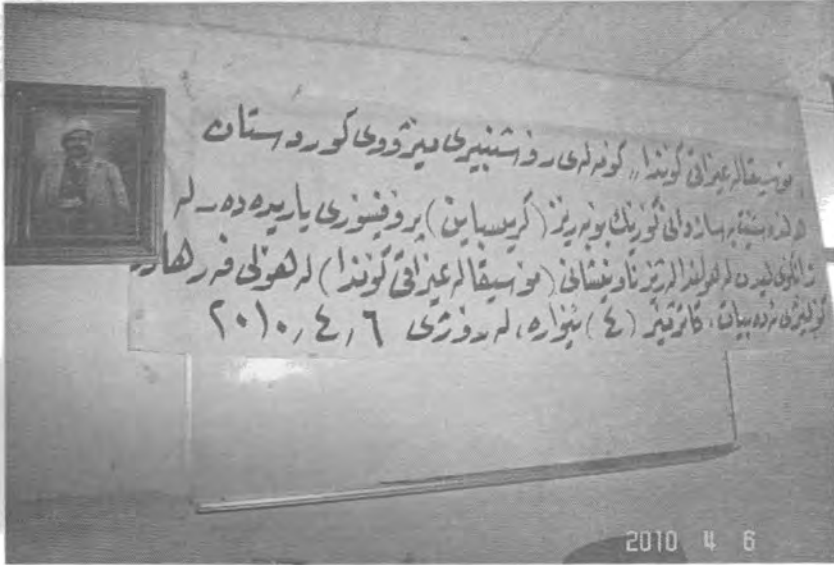 مۆسیقا لە عێراقی کۆندا,, کۆمەڵەی رۆشنبیری مێژووی کوردستان
هەڵدەستێت بە سازدانی کۆڕێک بۆ بەڕێز (کریسباین) پرۆفیسۆری یاریدەدەر لە
زانکۆی لیدن لە هۆڵندا لەژێر ناونیشانی (مۆسیقا لە عێراقی کۆندا) لە هۆڵی فەرهاد
کۆلیژی ئەدەبیات، کاتژمێر (٤) ئێوارە، لە رۆژی ٢٠١٠,٤,٦
2010 4 6